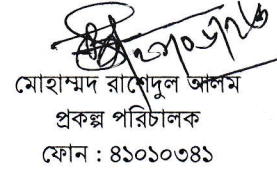 মোহাম্মদ রাশেদুল আলম
প্রকল্প পরিচালক
ফোন : ৪১০১০৩৪১